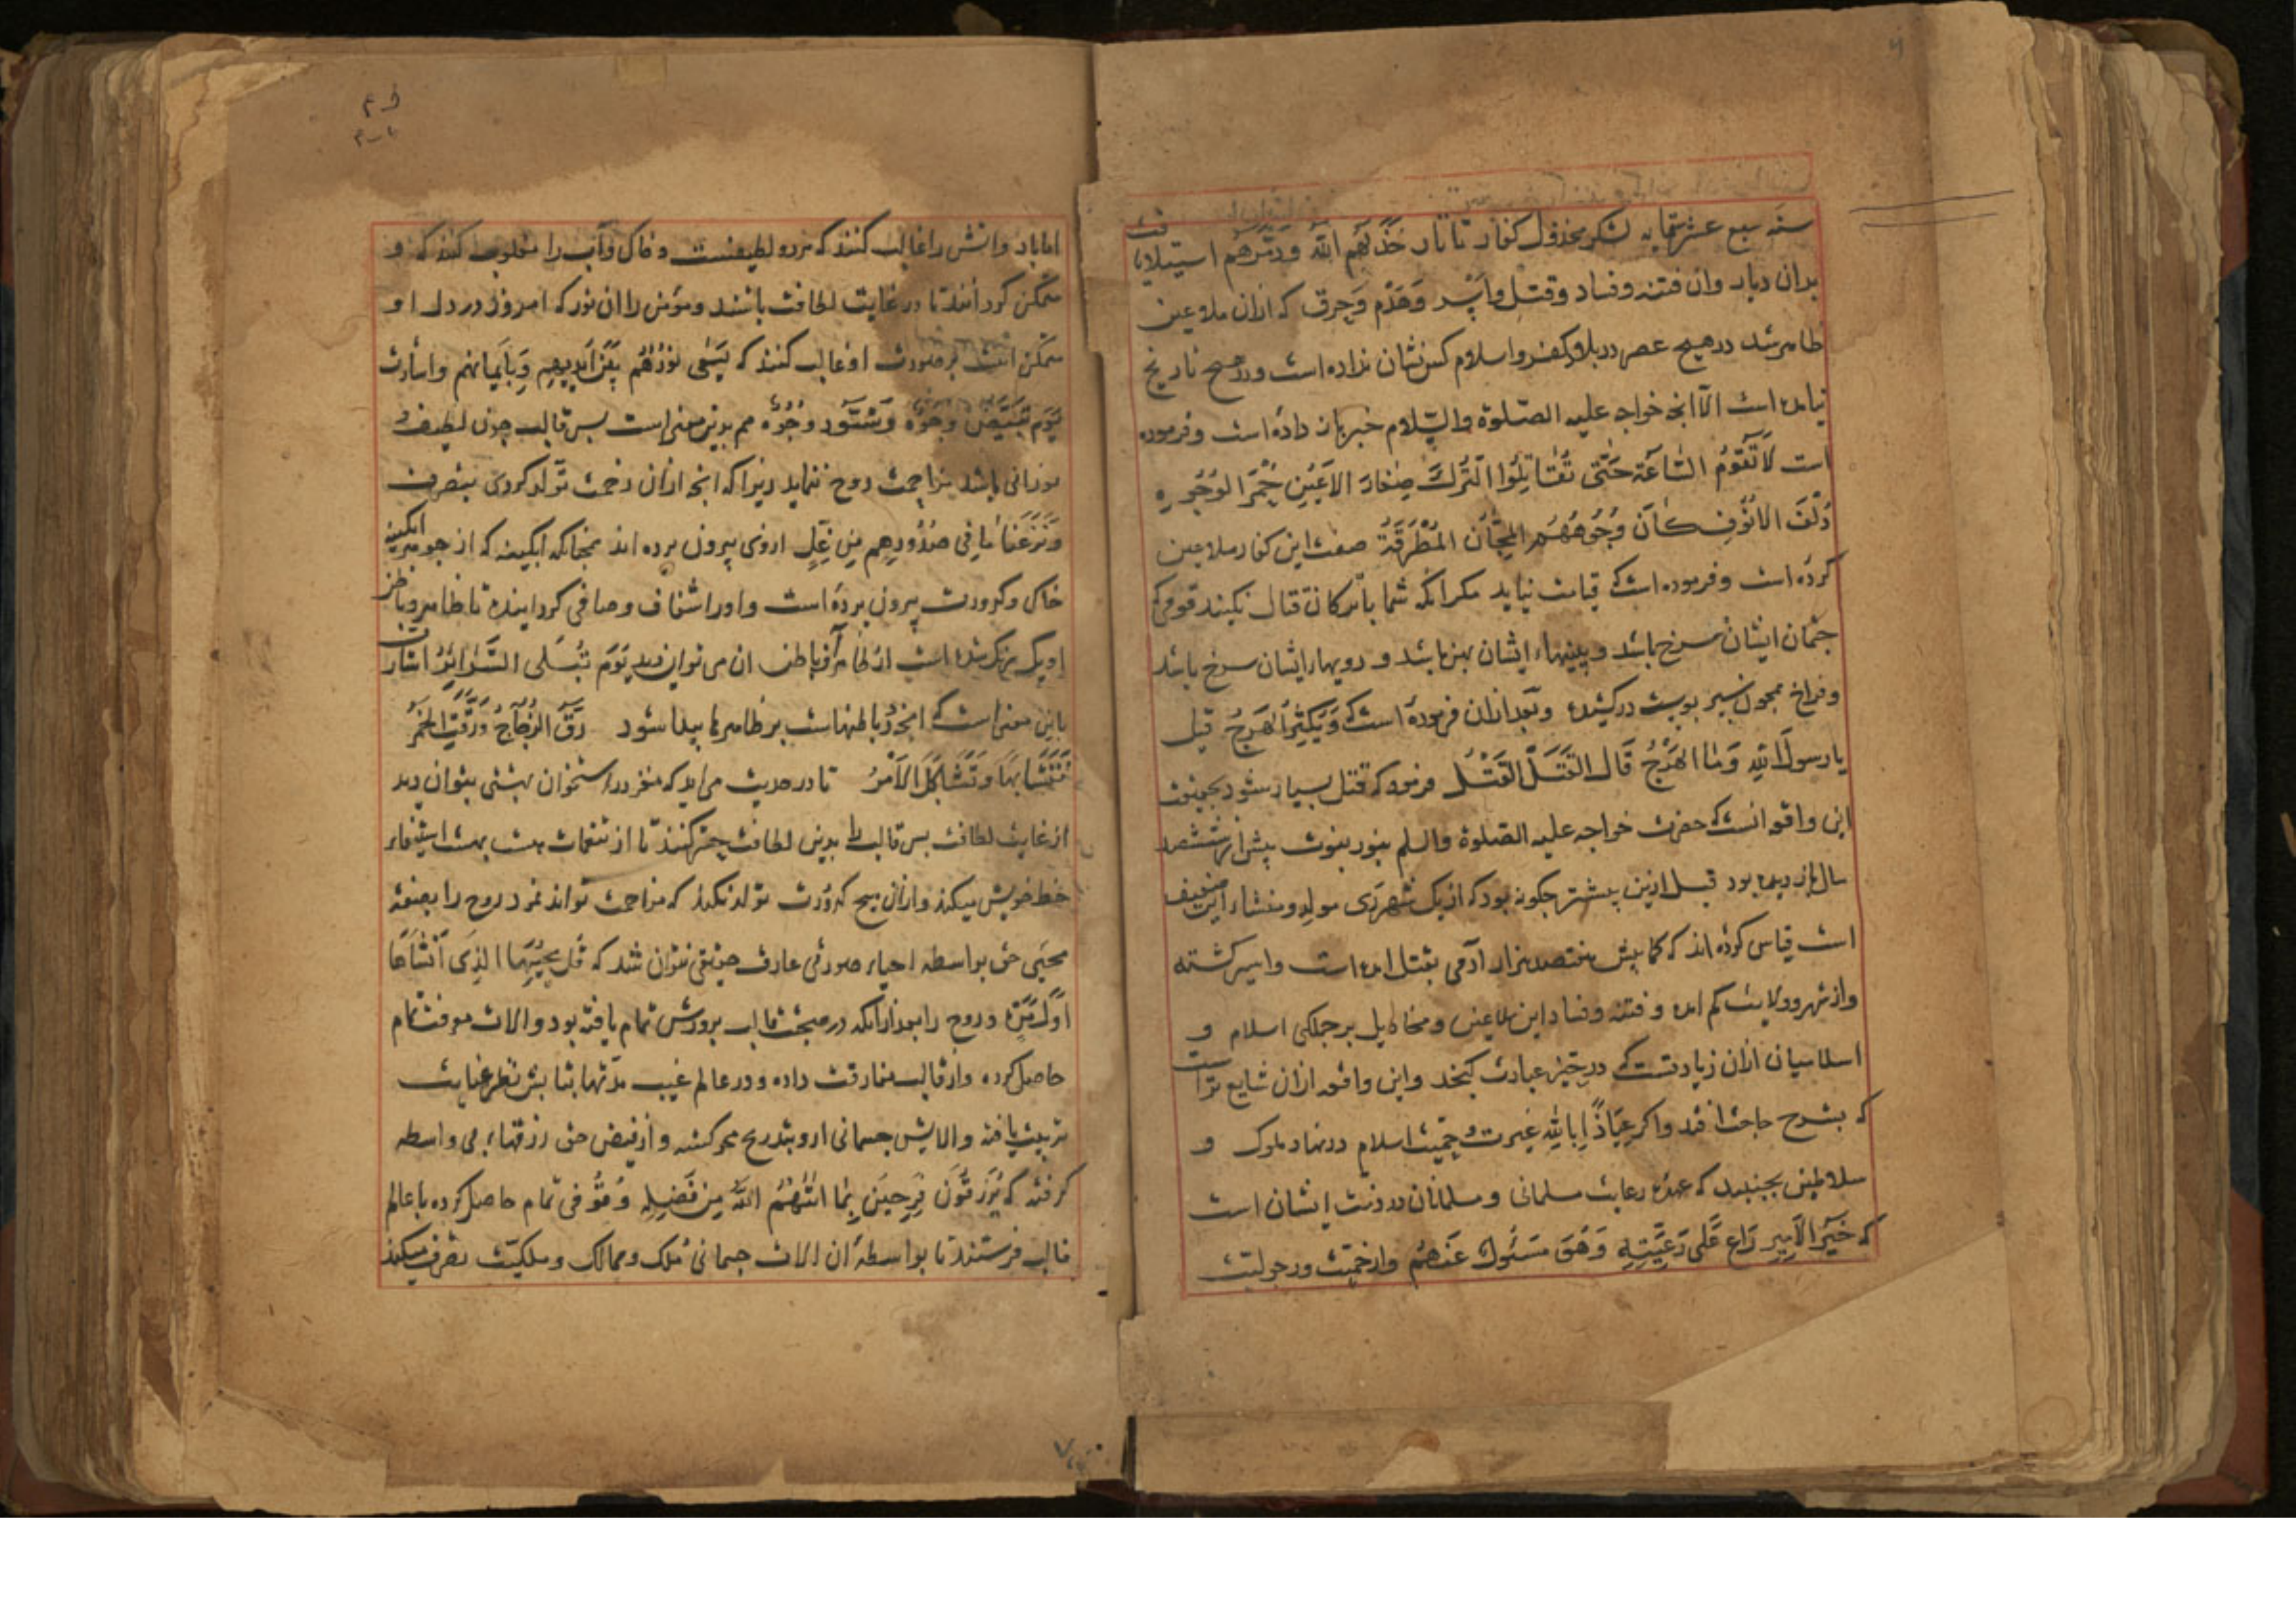 سنه سبع عشر ستمایه لشکر مخذول کفار تاتار خَذَلَهُم اللهُ وَدَمَّرَهُم استیلا یافت
بران دیار وان فتنه وفساد وقتل وأَسْر وَهَدْم وَحرق که ازان ملاعین
ظاهر شد در هیچ عصر در بلاد کفر واسلام کس نشان نداده است ودر هیچ تاریخ
نیامده است الّا انچه خواجه علیه الصّلوة والسّلام خبر بازداده است وفرموده
است لَا تَقُومُ السَّاعَة حَتّٰى تُقَاتِلُوا التُّرك صِغَارَ الاَعْیُنِ حُمْرَ الوُجُوهِ
ذُلْفَ الاُنُوفِ كَاَنَّ وُجُوهَهُم المجَانّ المُطْرَقَةُ صفت این کفار ملاعین
کرده است وفرموده است که قیامت نیاید مکر انکه شما با ترکان قتال بکنید قومی که
چشمان ایشان سرخ باشد وبینیهاء ایشان بهن باشد و رویهاء ایشان سرخ باشد
وفراخ همچون سپر بوست درکشیده وبعد ازان فرموده است که وَیَکثُرُ الهَرجُ قیل
یا رسولَ اللهِ وَمَا الهَرْجُ قَالَ القَتلُ القَتْلُ فرمود که قتل بسیار شود بحقیقت
این واقعه انست که حضرت خواجه علیه الصّلوة والسلم بنور نبوت پیش از ششصد
سال باز دیده بود قبل ازین بیشتر چکونه بود که از یک شهر ری مولد ومنشاء این ضعیف
است قیاس کرده اند که کما بیش هفتصد هزار آدمی بقتل امده است واسیر کشته
واز شهر وولایت کم امده وفتنه وفساد این ملاعین ومخاذیل بر جملکی اسلام و
اسلامیان ازان زیادتست که در حیّز عبارت کنجد واین واقعه ازان شایع تر است
که بشرح حاجت افتد واکر عِیَاذًا بِاللهِ غیرت وحمیّت اسلام در نهاد ملوک و
سلاطین بجنبد که عهدۀ رعایت مسلمانی ومسلمانان در ذمت ایشان است
که خَیرَ الاَمِیر رَاعٍ عَلى رَعِیَّتِهِ وَهُوَ مَسئُولٌ عَنهُم واز حمیّت ورجولیت
اما باد وآتش را غالب کنند که هر دو لطیفست وخاک وآب را مغلوب کنند که و
متمکن کردانند تا در غایت لطافت باشند ومؤمن را ان نور که امروز در دل او
متمکن است بر صورت او غالب کنند که یَسْعٰى نُورُهُم بَیْنَ اَیدِیهِم وَبِاَیمَانِهِم واشارت
یَوْمَ تَبْیَضُّ وُجُوهٌ وَتَسْوَدُّ وُجُوهٌ هم بدین معنی است بس قالب چون لطیف و
نورانی باشد مزاحمت روح ننماید زیرا که انچه ازان زحمت تولد کردی بتصرف
وَنَزَعْنَا مَا فِی صُدُورِهِم مِن غِلٍّ ازوی بیرون برده اند همچنانکه ابکینه که از جوهر ابکینه
خاک وکدورت بیرون برده است واورا شفاف وصافی کردانیده تا ظاهر وباطن
او یک رنک شده است از ظاهر او باطن ان می توان دید یَوْمَ تُبْلَى السَّرَائِرُ اشارت
باین معنی است که انچه در باطنهاست بر ظاهرها بیدا شود رَقَّ الزُّجَاجُ وَرَقَّتِ الخَمْرُ
فَتَشَابَهَا وَتَشَاكَلَ الاَمْرُ تا در حدیث می اید که مغز در استخوان بهشتی بتوان دید
از غایت لطافت بس قالب را بدین لطافت حشر کنند تا از تنعمات هشت بهشت استیفاء
حظ خویش میکند وازان هیچ کدورت تولد نکند که مزاحمت تواند نمود روح را بصفت
محیی حق بواسطه احیاء صوری عارف حقیقی نتوان شد که قُل یُحیِیهَا الَّذِی اَنشَاَهَا
اَوَّلَ مَرَّةٍ وروح را بعد ازانکه در صحبت قالب برورش تمام یافته بود والات معرفت تمام
حاصل کرده واز قالب مفارقت داده ودر عالم غیب مدّتها بتابش نظر عنایت
تربیت یافته والایش جسمانی ازو بتدریج محو کشته واز فیض حق رزقهاء بی واسطه
کرفته که یُرْزَقُونَ فَرِحِینَ بِمَا اٰتٰهُمُ اللهُ مِن فَضْلِهِ وقوّتی تمام حاصل کرده با عالم
قالب فرستند تا بواسطۀ ان الات جسمانی مُلک وممالک وملکیّت تصرف میکند